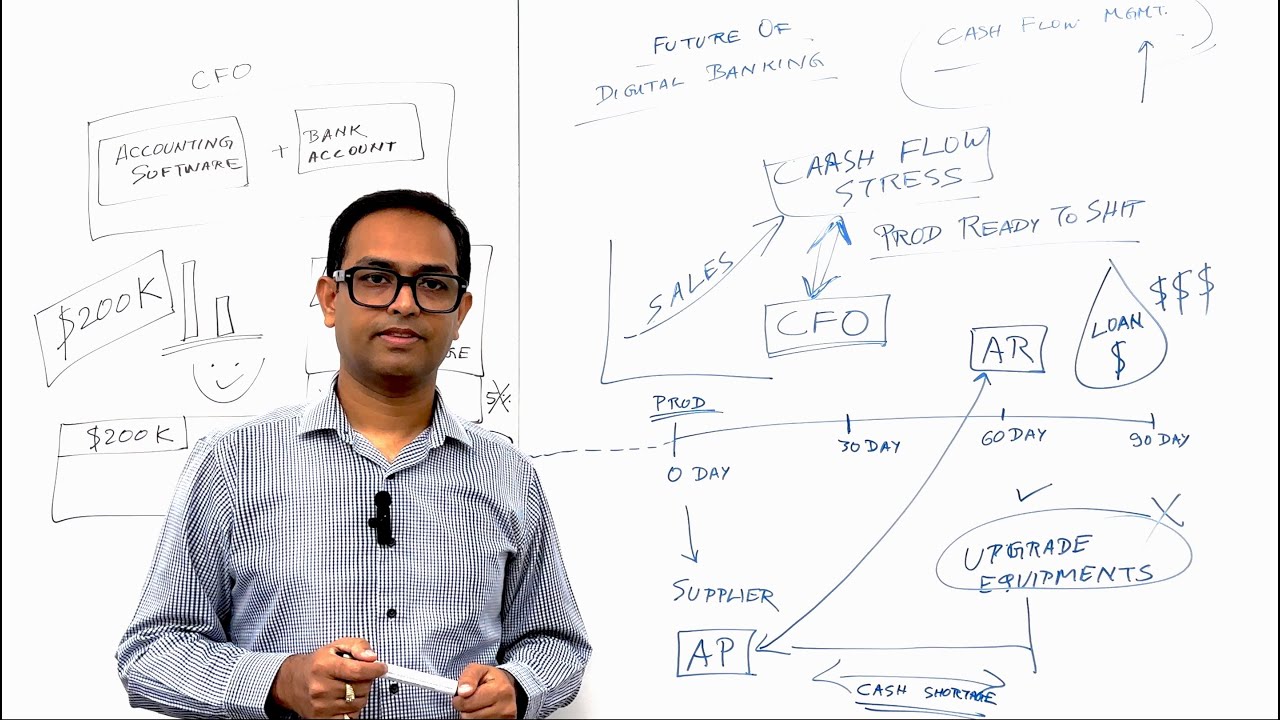 CFO
ACCOUNTING
SOFTWARE
+
BANK
ACCOUNT
$200K
$200K
5%
FUTURE OF
DIGITAL BANKING
CASH FLOW MGMT.
CAASH FLOW
STRESS
PROD READY TO SHIT
SALES
CFO
AR
LOAN
$
$$$
PROD
0 DAY
30 DAY
60 DAY
90 DAY
SUPPLIER
AP
UPGRADE
EQUIPMENTS
CASH SHORTAGE